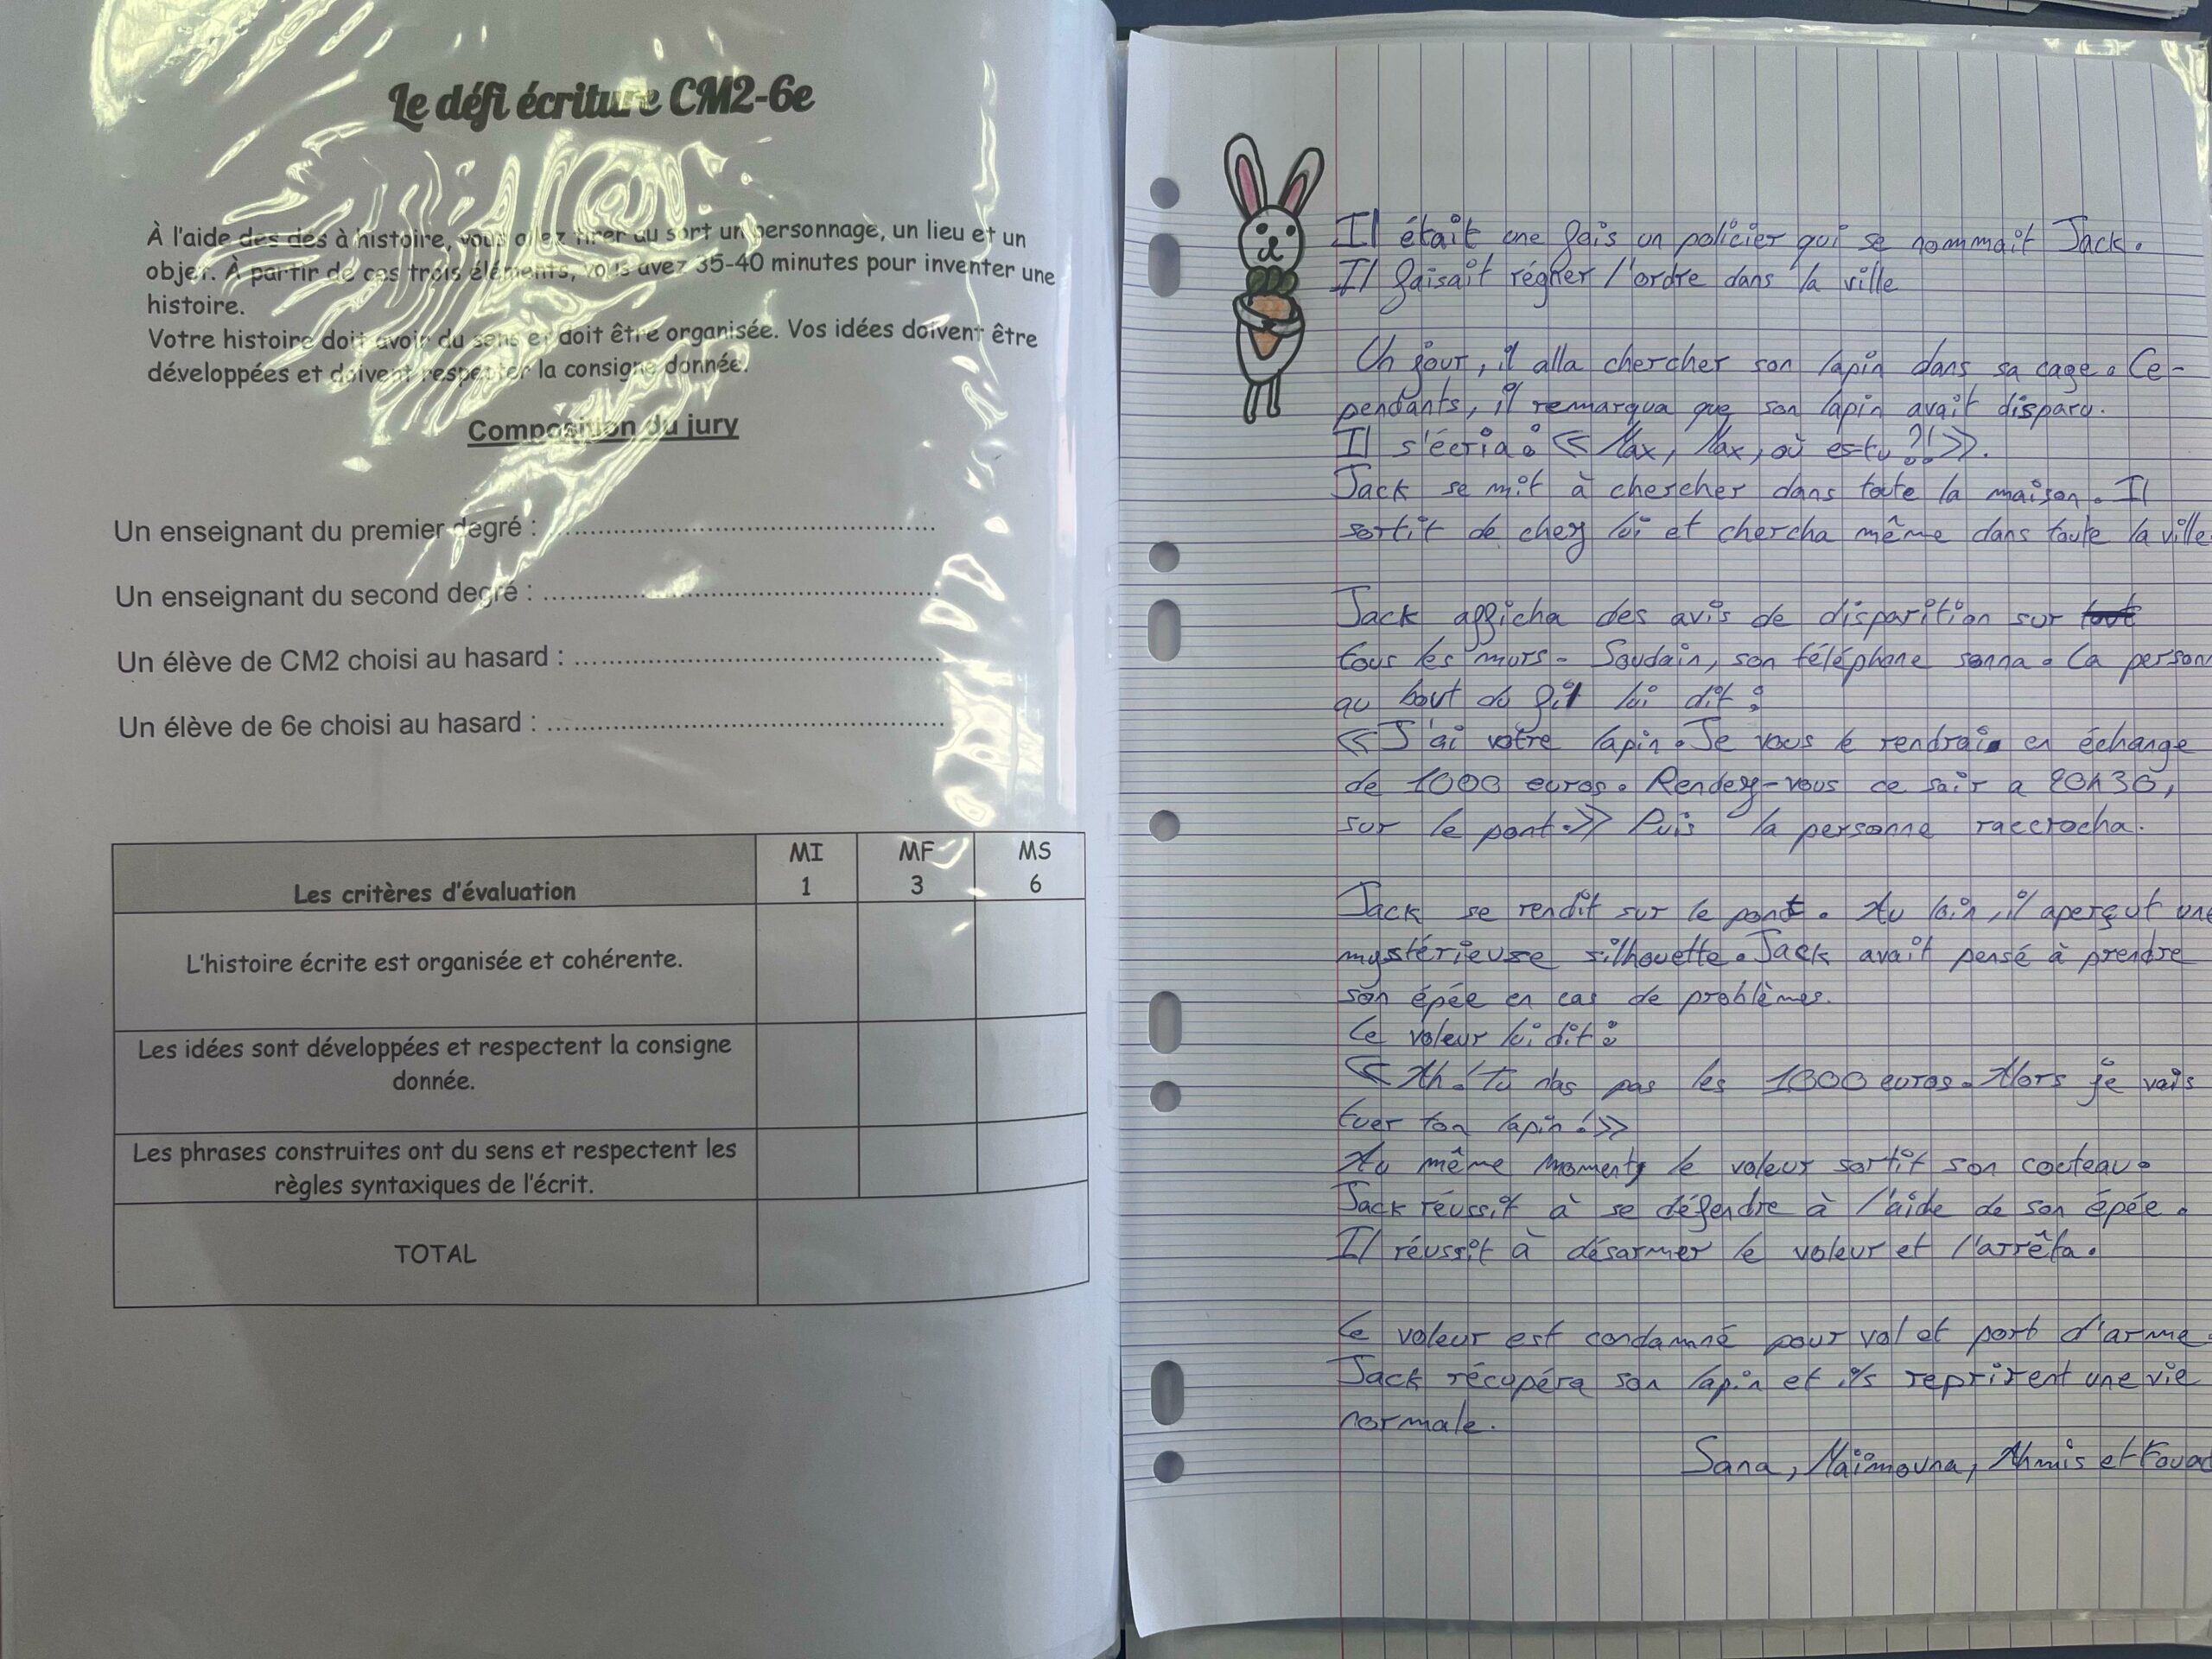 Le défi écriture CM2-6e
À l'aide des dés à histoire, vous allez tirer au sort un personnage, un lieu et un
objet. À partir de ces trois éléments, vous avez 35-40 minutes pour inventer une
histoire.
Votre histoire doit avoir du sens et doit être organisée. Vos idées doivent être
développées et doivent respecter la consigne donnée.
Composition du jury
Un enseignant du premier degré : ......................................................
Un enseignant du second degré : ......................................................
Un élève de CM2 choisi au hasard : ..................................................
Un élève de 6e choisi au hasard : ......................................................
Les critères d'évaluation
MI
1
MF
3
MS
6
L'histoire écrite est organisée et cohérente.
Les idées sont développées et respectent la consigne
donnée.
Les phrases construites ont du sens et respectent les
règles syntaxiques de l'écrit.
TOTAL
Il était une fois un policier qui se nommait Jack.
Il faisait régner l'ordre dans la ville
Un jour, il alla chercher son lapin dans sa cage. Ce-
pendants, il remarqua que son lapin avait disparu.
Il s'écria : « Max, Max, où es-tu ?! ».
Jack se mit à chercher dans toute la maison. Il
sortit de chez lui et chercha même dans toute la ville.
Jack afficha des avis de disparition sur tout
tous les murs. Soudain, son téléphone sonna. La person
au bout du fil lui dit :
« J'ai votre lapin. Je vous le rendrai en échange
de 1000 euros. Rendez-vous ce soir a 20h30,
sur le pont. » Puis la personne raccrocha.
Jack se rendit sur le pont. Au loin, il aperçut une
mystérieuse silhouette. Jack avait pensé à prendre
son épée en cas de problèmes.
Le voleur lui dit :
« Ah ! Tu n'as pas les 1000 euros. Alors je vais
tuer ton lapin ! »
Au même moment, le voleur sortit son couteau.
Jack réussit à se défendre à l'aide de son épée.
Il réussit à désarmer le voleur et l'arrêta.
Le voleur est condamné pour vol et port d'arme.
Jack récupéra son lapin et ils reprirent une vie
normale.
Sana, Maïmouna, Ahmis et Fouad